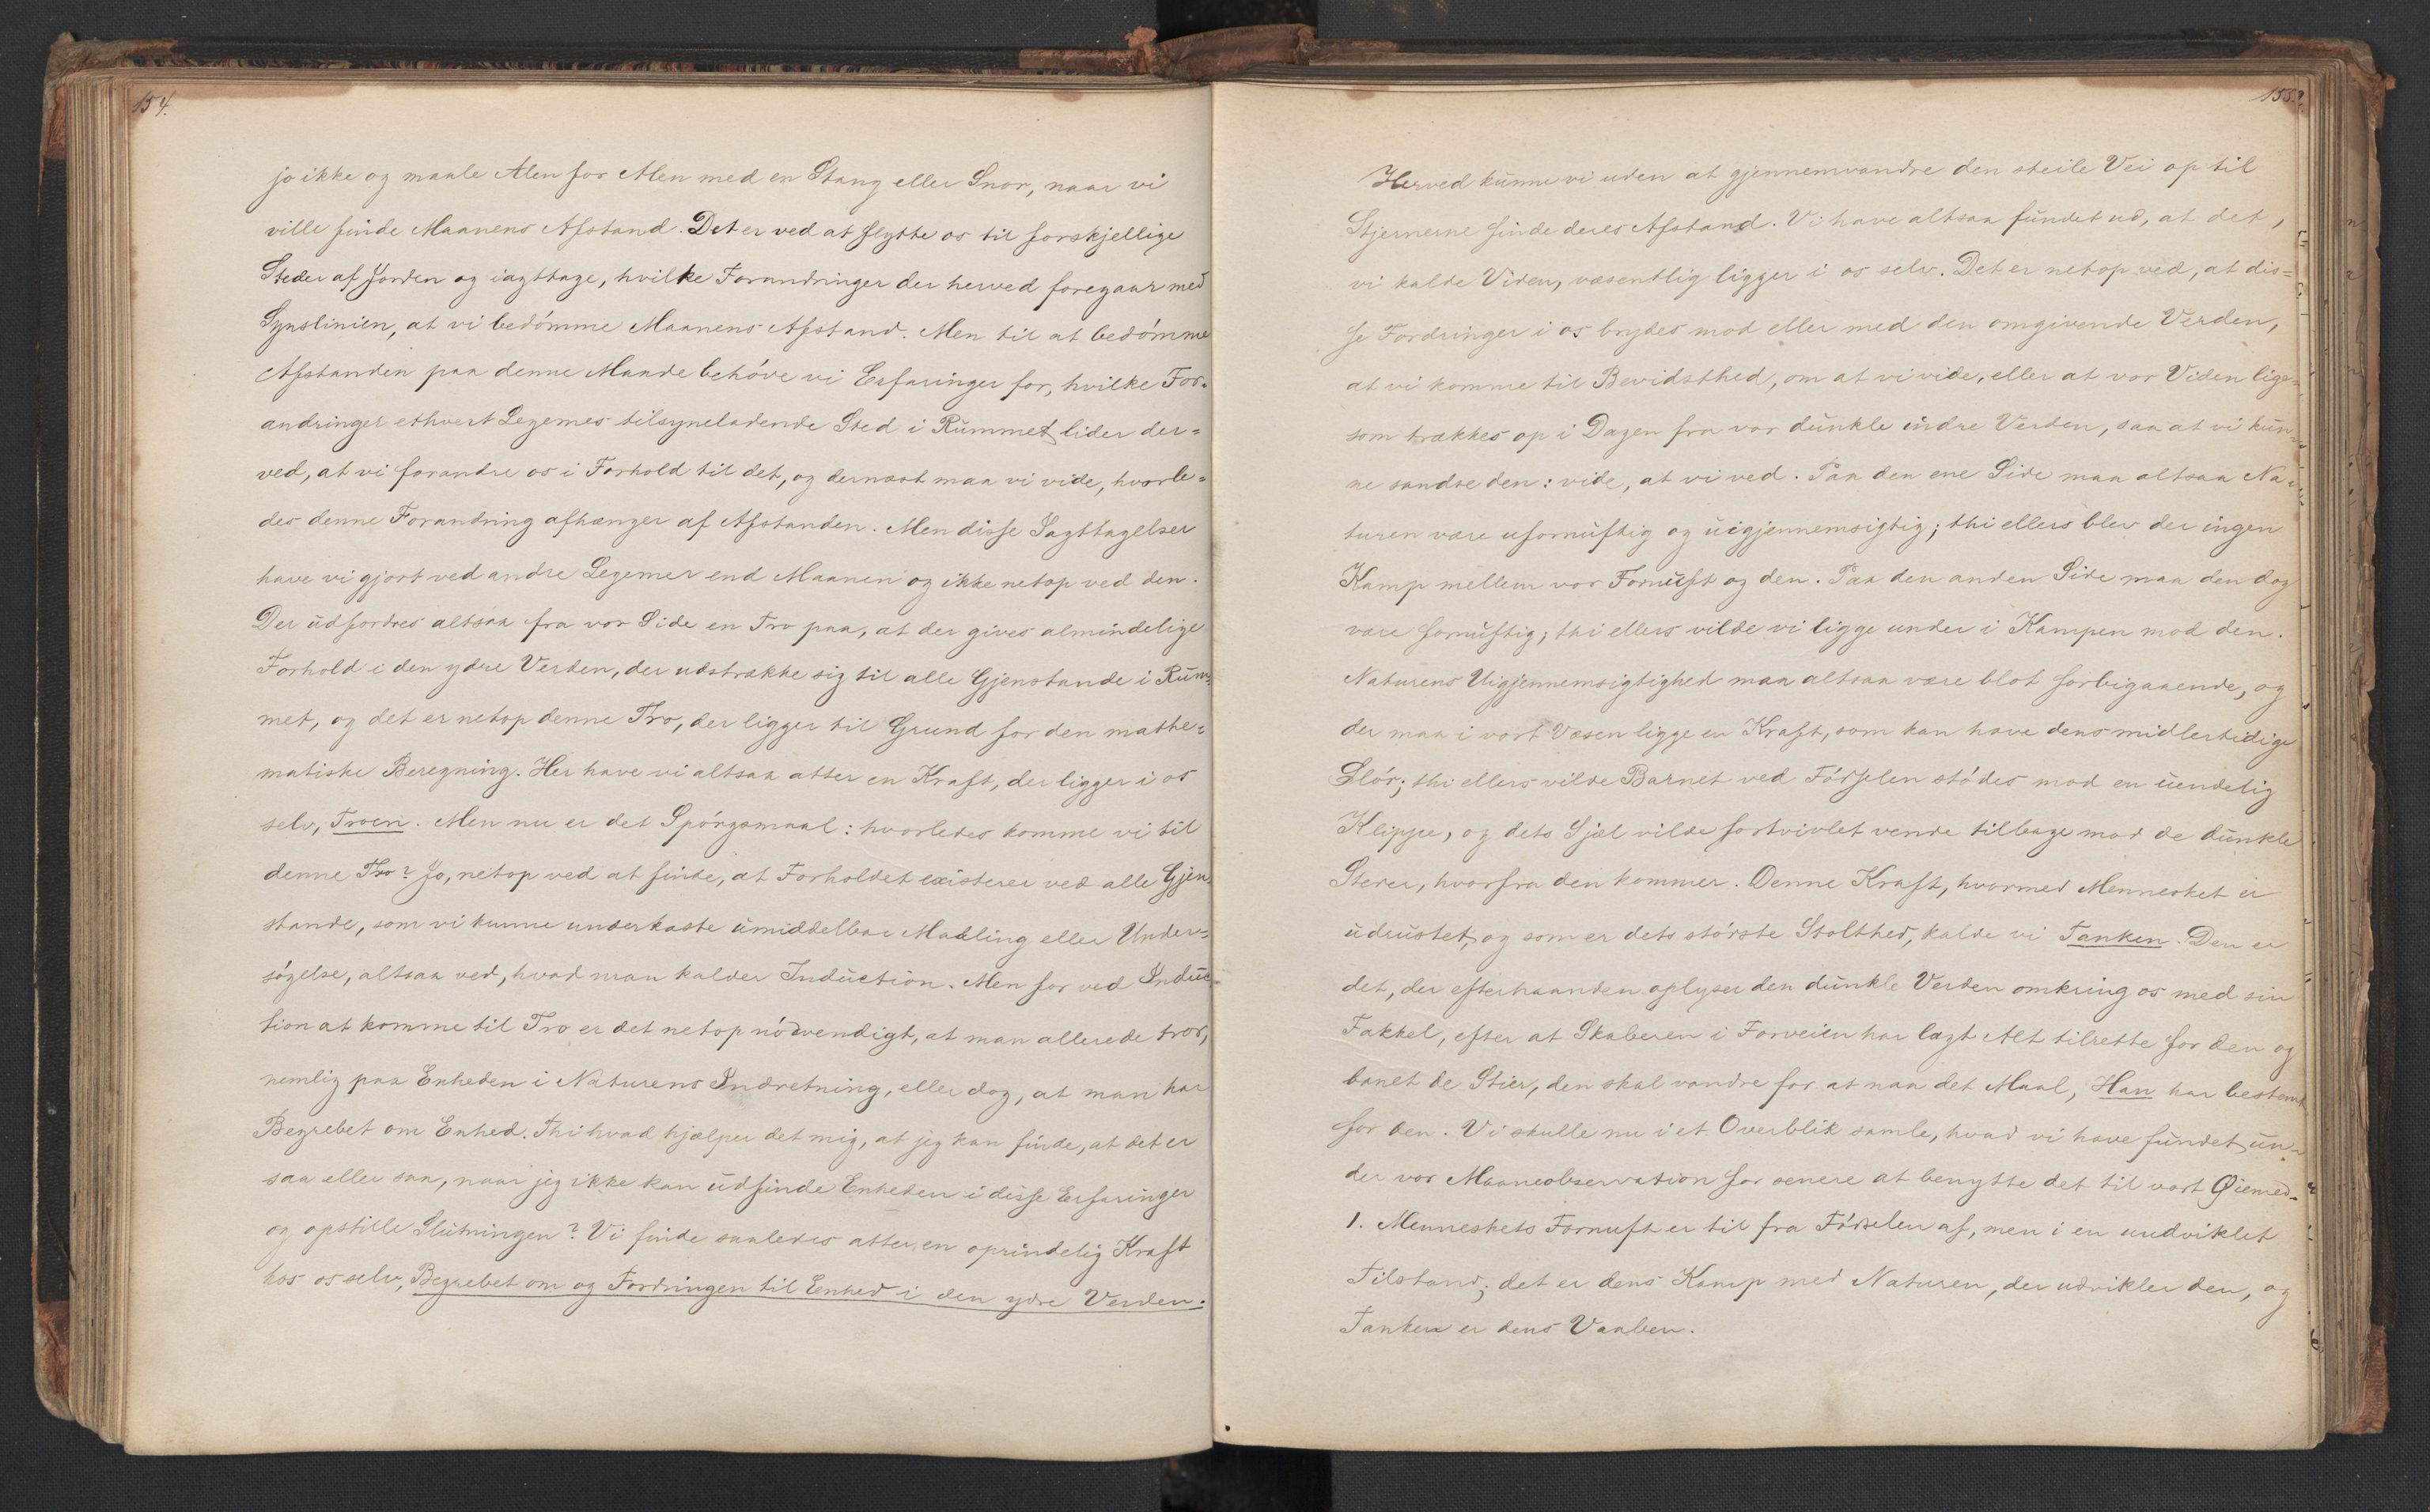 154.
jo ikke og maale Alen for Alen med en Stang eller Snor, naar vi
ville finde Maanens Afstand. Det er ved at flytte os til forskjellige
Steder af Jorden og iagttage, hvilke Forandringer der herved foregaar med
Synslinien, at vi bedómme Maanens Afstand. Men til at bedómme
Afstanden paa denne Maade behóve vi Erfaringer for, hvilke For-
andringer ethvert Legemes tilsyneladende Sted i Rummet lider der=
ved, at vi forandre os i Forhold til det, og dernæst maa vi vide, hvorle=
des denne Forandring afhænger af Afstanden. Men disse Iagttagelser
have vi gjort ved andre Legemer end Maanen og ikke netop ved den.
Der udfordres altsaa fra vor Side en Tro paa, at der gives almindelige
Forhold i den ydre Verden, der udstrække sig til alle Gjenstande i Rum=
met, og det er netop denne Tro, der ligger til Grund for den mathe=
matiske Beregning. Her have vi altsaa atter en Kraft, der ligger i os
selv, Troen. Men nu er det Spórgsmaal: hvorledes komme vi til
denne Tro? Jo, netop ved at finde, at Forholdet existerer ved alle Gjen=
stande, som vi kunne underkaste umiddelbar Maaling eller Under=
sógelse, altsaa ved, hvad man kalder Induction. Men for ved Induc
tion at komme til Tro er det netop nódvendigt, at man allerede tror,
nemlig paa Enheden i Naturens Indretning, eller dog, at man har
Begrebet om Enhed. Thi hvad hjælper det mig, at jeg kan finde, at det er
saa eller saa, naar jeg ikke kan udfinde Enheden i disse Erfaringer
og opstille Slutningen? Vi finde saaledes atter en oprindelig Kraft
hos os selv, Begrebet om og Fordringen til Enhed i den ydre Verden.
155.
Herved kunne vi uden at gjennemvandre den steile Vei op til
Stjernerne finde deres Afstand. Vi have altsaa fundet ud, at det,
vi kalde Viden, væsentlig ligger i os selv. Det er netop ved, at dis=
se Fordringer i os brydes mod eller med den omgivende Verden,
at vi komme til Bevidsthed, om at vi vide, eller at vor Viden lige=
som trækkes op i Dagen fra vor dunkle indre Verden, saa at vi kun=
ne sandse den: vide, at vi ved. Paa den ene Side maa altsaa Na=
turen være ufornuftig og uigjennemsigtig; thi ellers blev der ingen
Kamp mellem vor Fornuft og den. Paa den anden Side maa den dog
være fornuftig; thi ellers vilde vi ligge under i Kampen mod den.
Naturens Uigjennemsigtighed maa altsaa være blot forbigaaende, og
der maa i vort Væsen ligge en Kraft, som kan hæve dens midlertidige
Slór; thi ellers vilde Barnet ved Fódselen stódes mod en uendelig
Klippe, og dets Sjæl vilde fortvivlet vende tilbage mod de dunkle
Steder, hvorfra den kommer. Denne Kraft, hvormed Mennesket er
udrustet, og som er dets stórste Stolthed, kalde vi Tanken. Den er
det, der efterhaanden oplyser den dunkle Verden omkring os med sin
Fakkel, efter at Skaberen i Forveien har lagt Alt tilrette for den og
banet de Stier, den skal vandre for at naa det Maal, Han har bestemt
for den. Vi skulle nu i et Overblik samle, hvad vi have fundet un=
der vor Maaneobservation for senere at benytte det til vort Øiemed.
1. Menneskets Fornuft er til fra Fódselen af, men i en uudviklet
Tilstand; det er dens Kamp med Naturen, der udvikler den, og
Tanken er dens Vaaben.